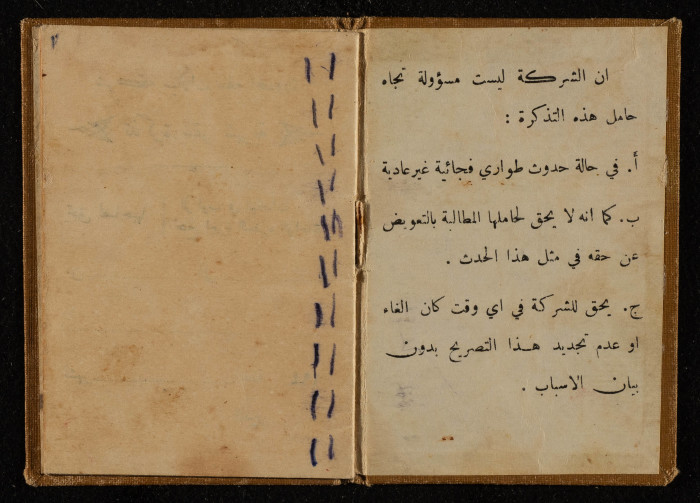 ان الشركة ليست مسؤولة تجاه
حامل هذه التذكرة :
أ. في حالة حدوث طواري فجائية غير عادية
ب. كما انه لا يحق لحاملها المطالبة بالتعويض
عن حقه في مثل هذا الحدث .
ج. يحق للشركة في اي وقت كان الغاء
او عدم تجديد هذا التصريح بدون
بيان الاسباب .